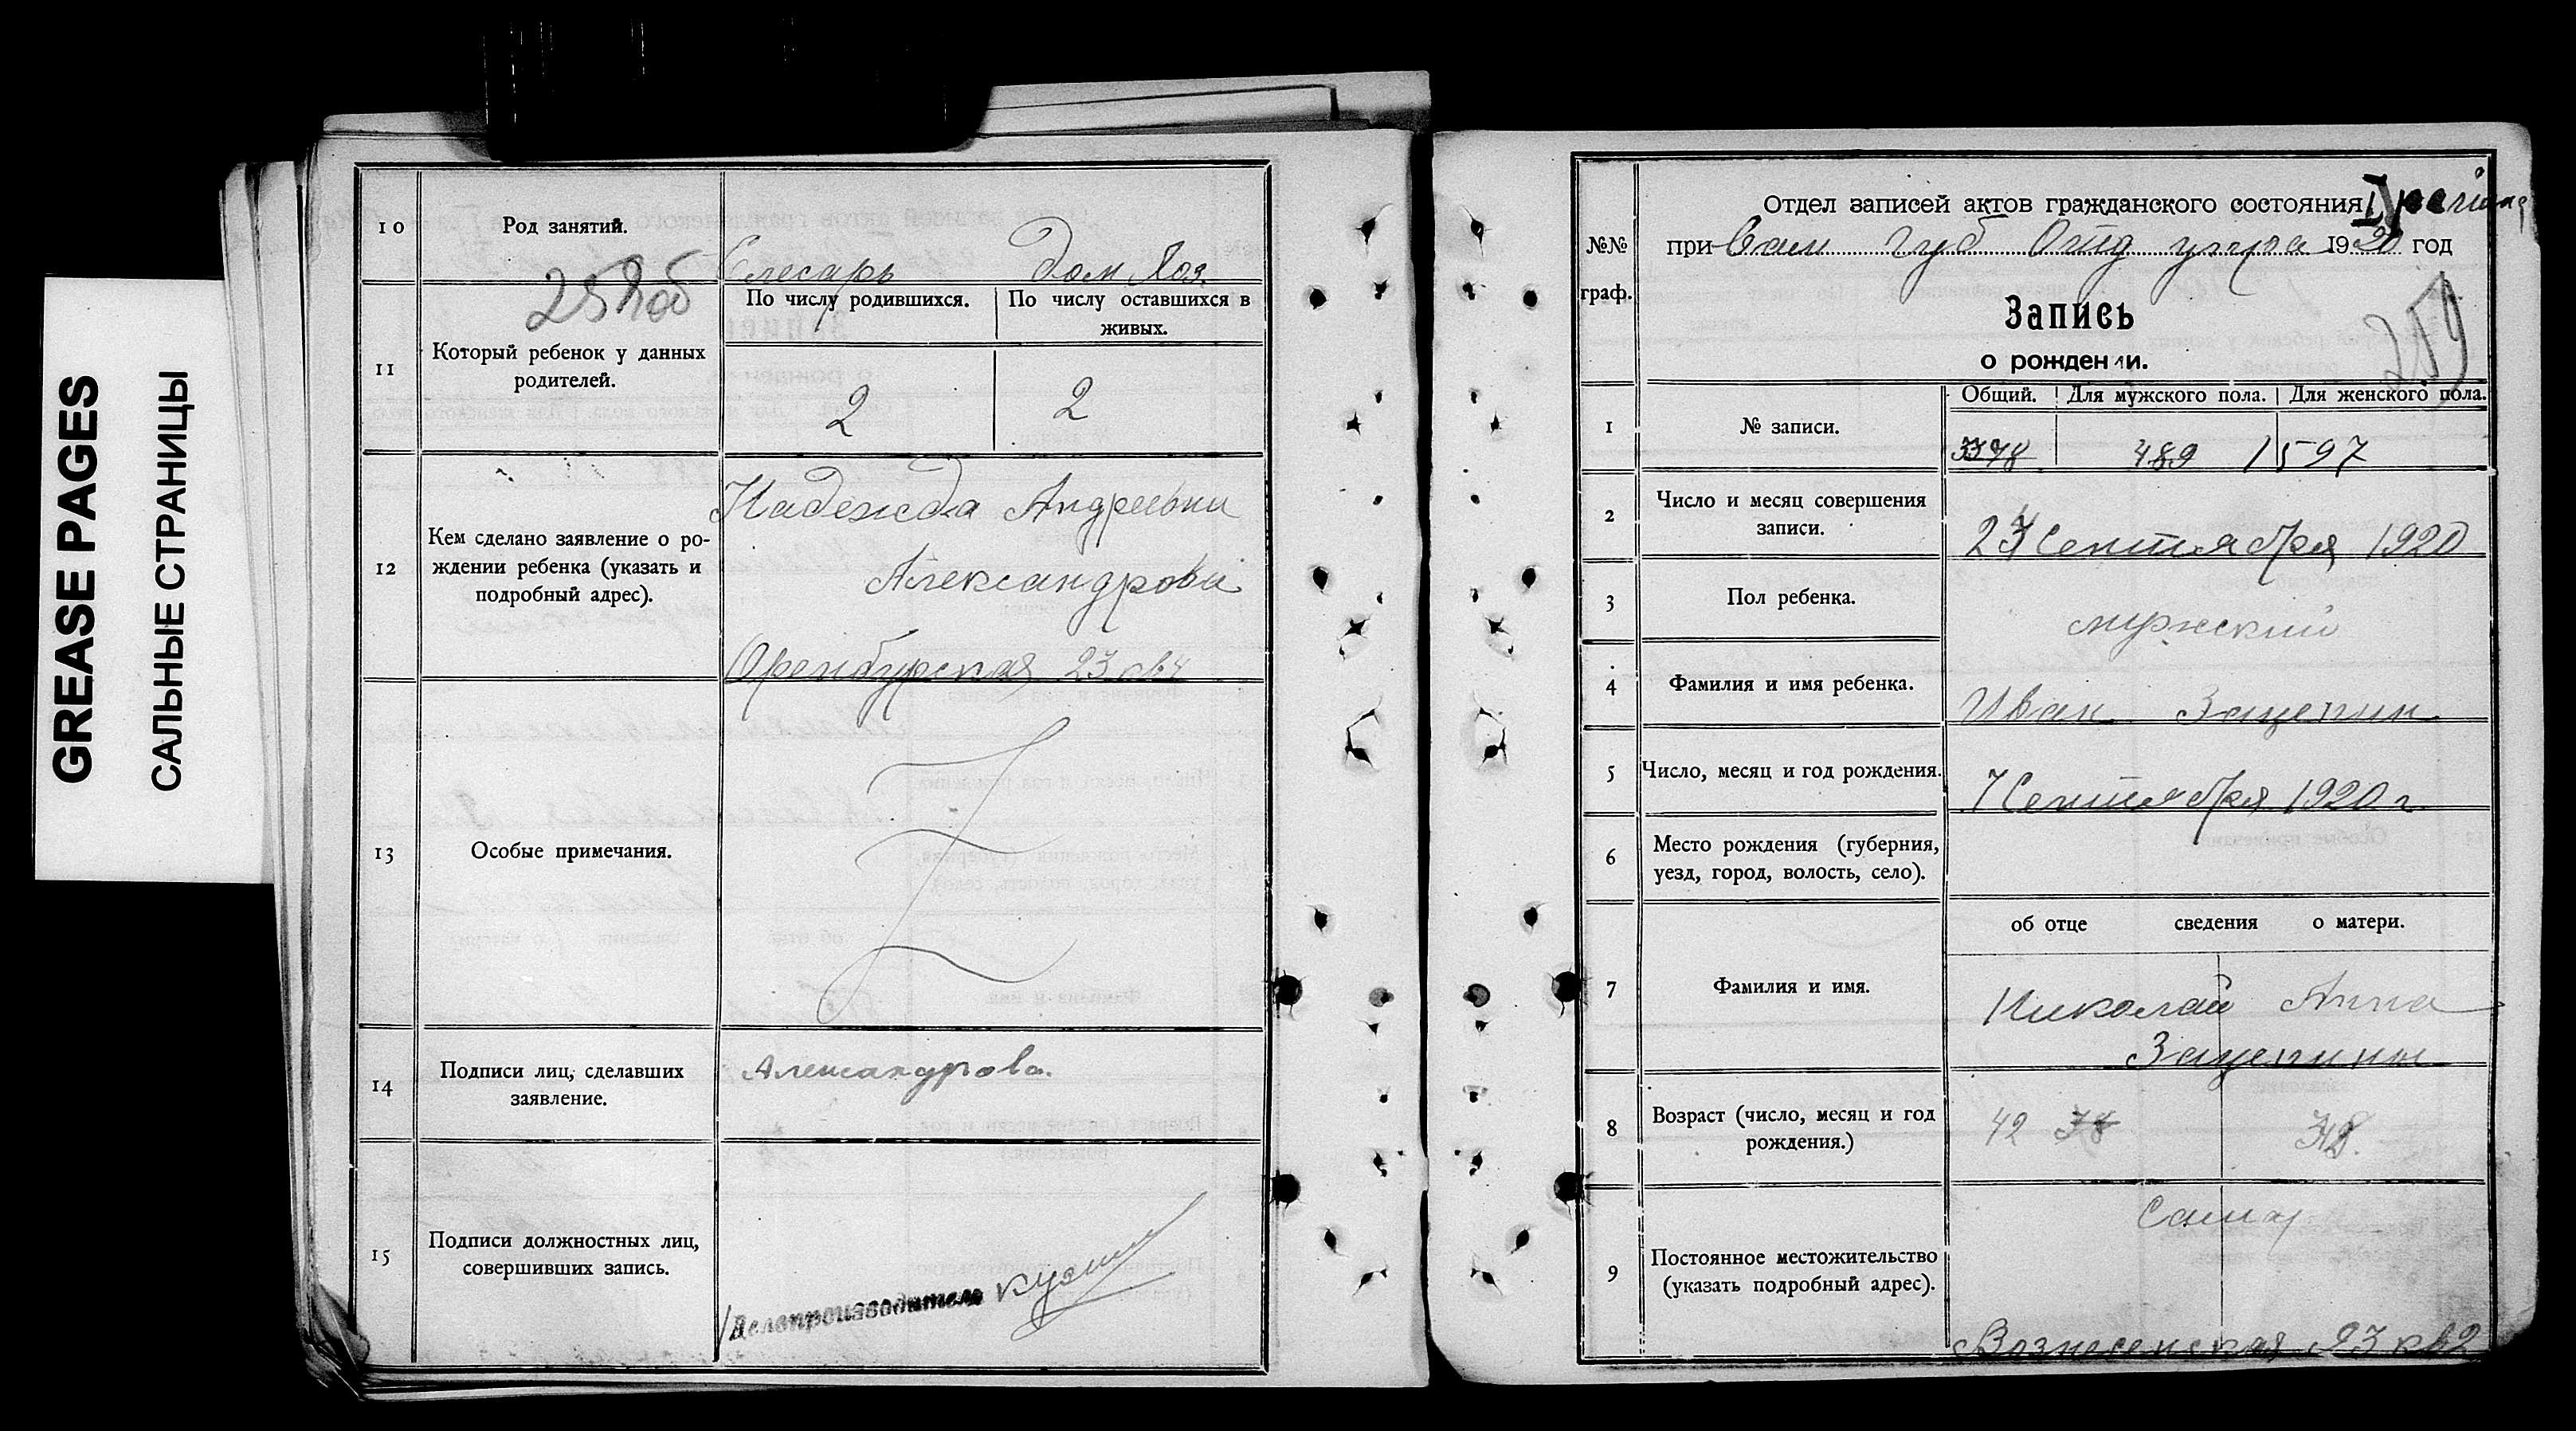 GREASE PAGES
САЛЬНЫЕ СТРАНИЦЫ
10
Род занятий.
Слесарь Дом Хоз.
258 об
11
Который ребенок у данных
родителей.
По числу родившихся.
По числу оставшихся в
живых.
2
2
12
Кем сделано заявление о ро-
ждении ребенка (указать и
подробный адрес).
Надежда Андреевна
Александрова
Оренбургская 23 кв 4
13
Особые примечания.
14
Подписи лиц, сделавших
заявление.
Александрова.
15
Подписи должностных лиц,
совершивших запись.
Делопроизводитель
№№
граф.
Отдел записей актов гражданского состояния
при Сам Губ Отд упра 1920 год
Запись
о рождении.
259
1
№ записи.
Общий.
Для мужского пола.
Для женского пола.
489 1597
2
Число и месяц совершения
записи.
Сентября 1920
3
Пол ребенка.
мужский
4
Фамилия и имя ребенка.
Иван Защепин
5
Число, месяц и год рождения.
7 Сентября 1920 г
6
Место рождения (губерния,
уезд, город, волость, село).
об отце сведения о матери.
7
Фамилия и имя.
Николай Анна
Защепины
8
Возраст (число, месяц и год
рождения.)
42 38
38.
9
Постоянное местожительство
(указать подробный адрес).
Самар
Вознесенская 23 кв 2